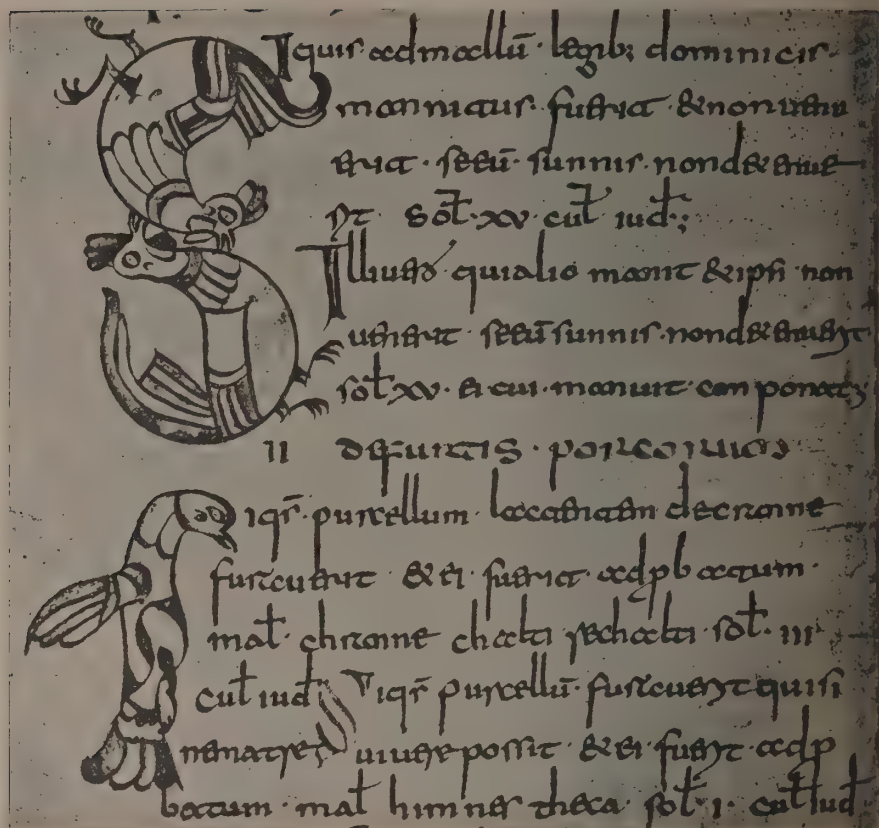 Siquis ad mallū · legib; dominicis ·
mannitus · fuerit · & non uen
erit · seeū · sunnis · non detenue
rit sol · xv · cul iud · ;
Ille uero qui alio manit & ipsi non
uenerit seeū sunnis · non detenuerit
sol xv · ei cui · manuit con ponat;
II de furtis · porcorum
Siqs · purcellum · lactantem de cranne
furauerit · & ei · fuerit · adpbatum ·
mal · chranne chalti rechalti sol · III
cul iud Siqs purcellū · furauerit qui si
ne matre uiuere possit · & ei · fuerit · adp
batum · mal himnes theca · sol · I · cul iud